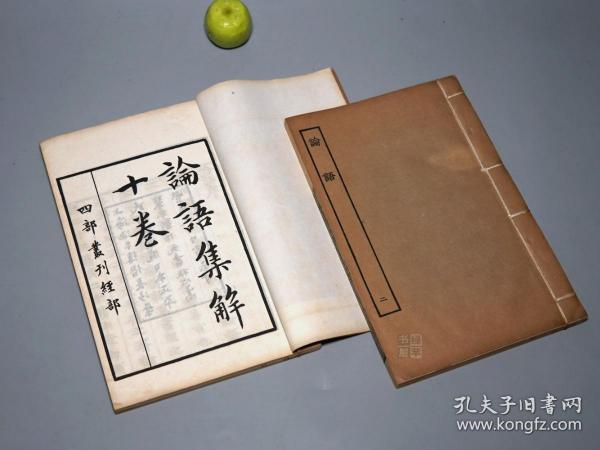 論語集解
十卷
四部叢刊經部
論語
二
孔夫子旧書网
www.kongfz.com